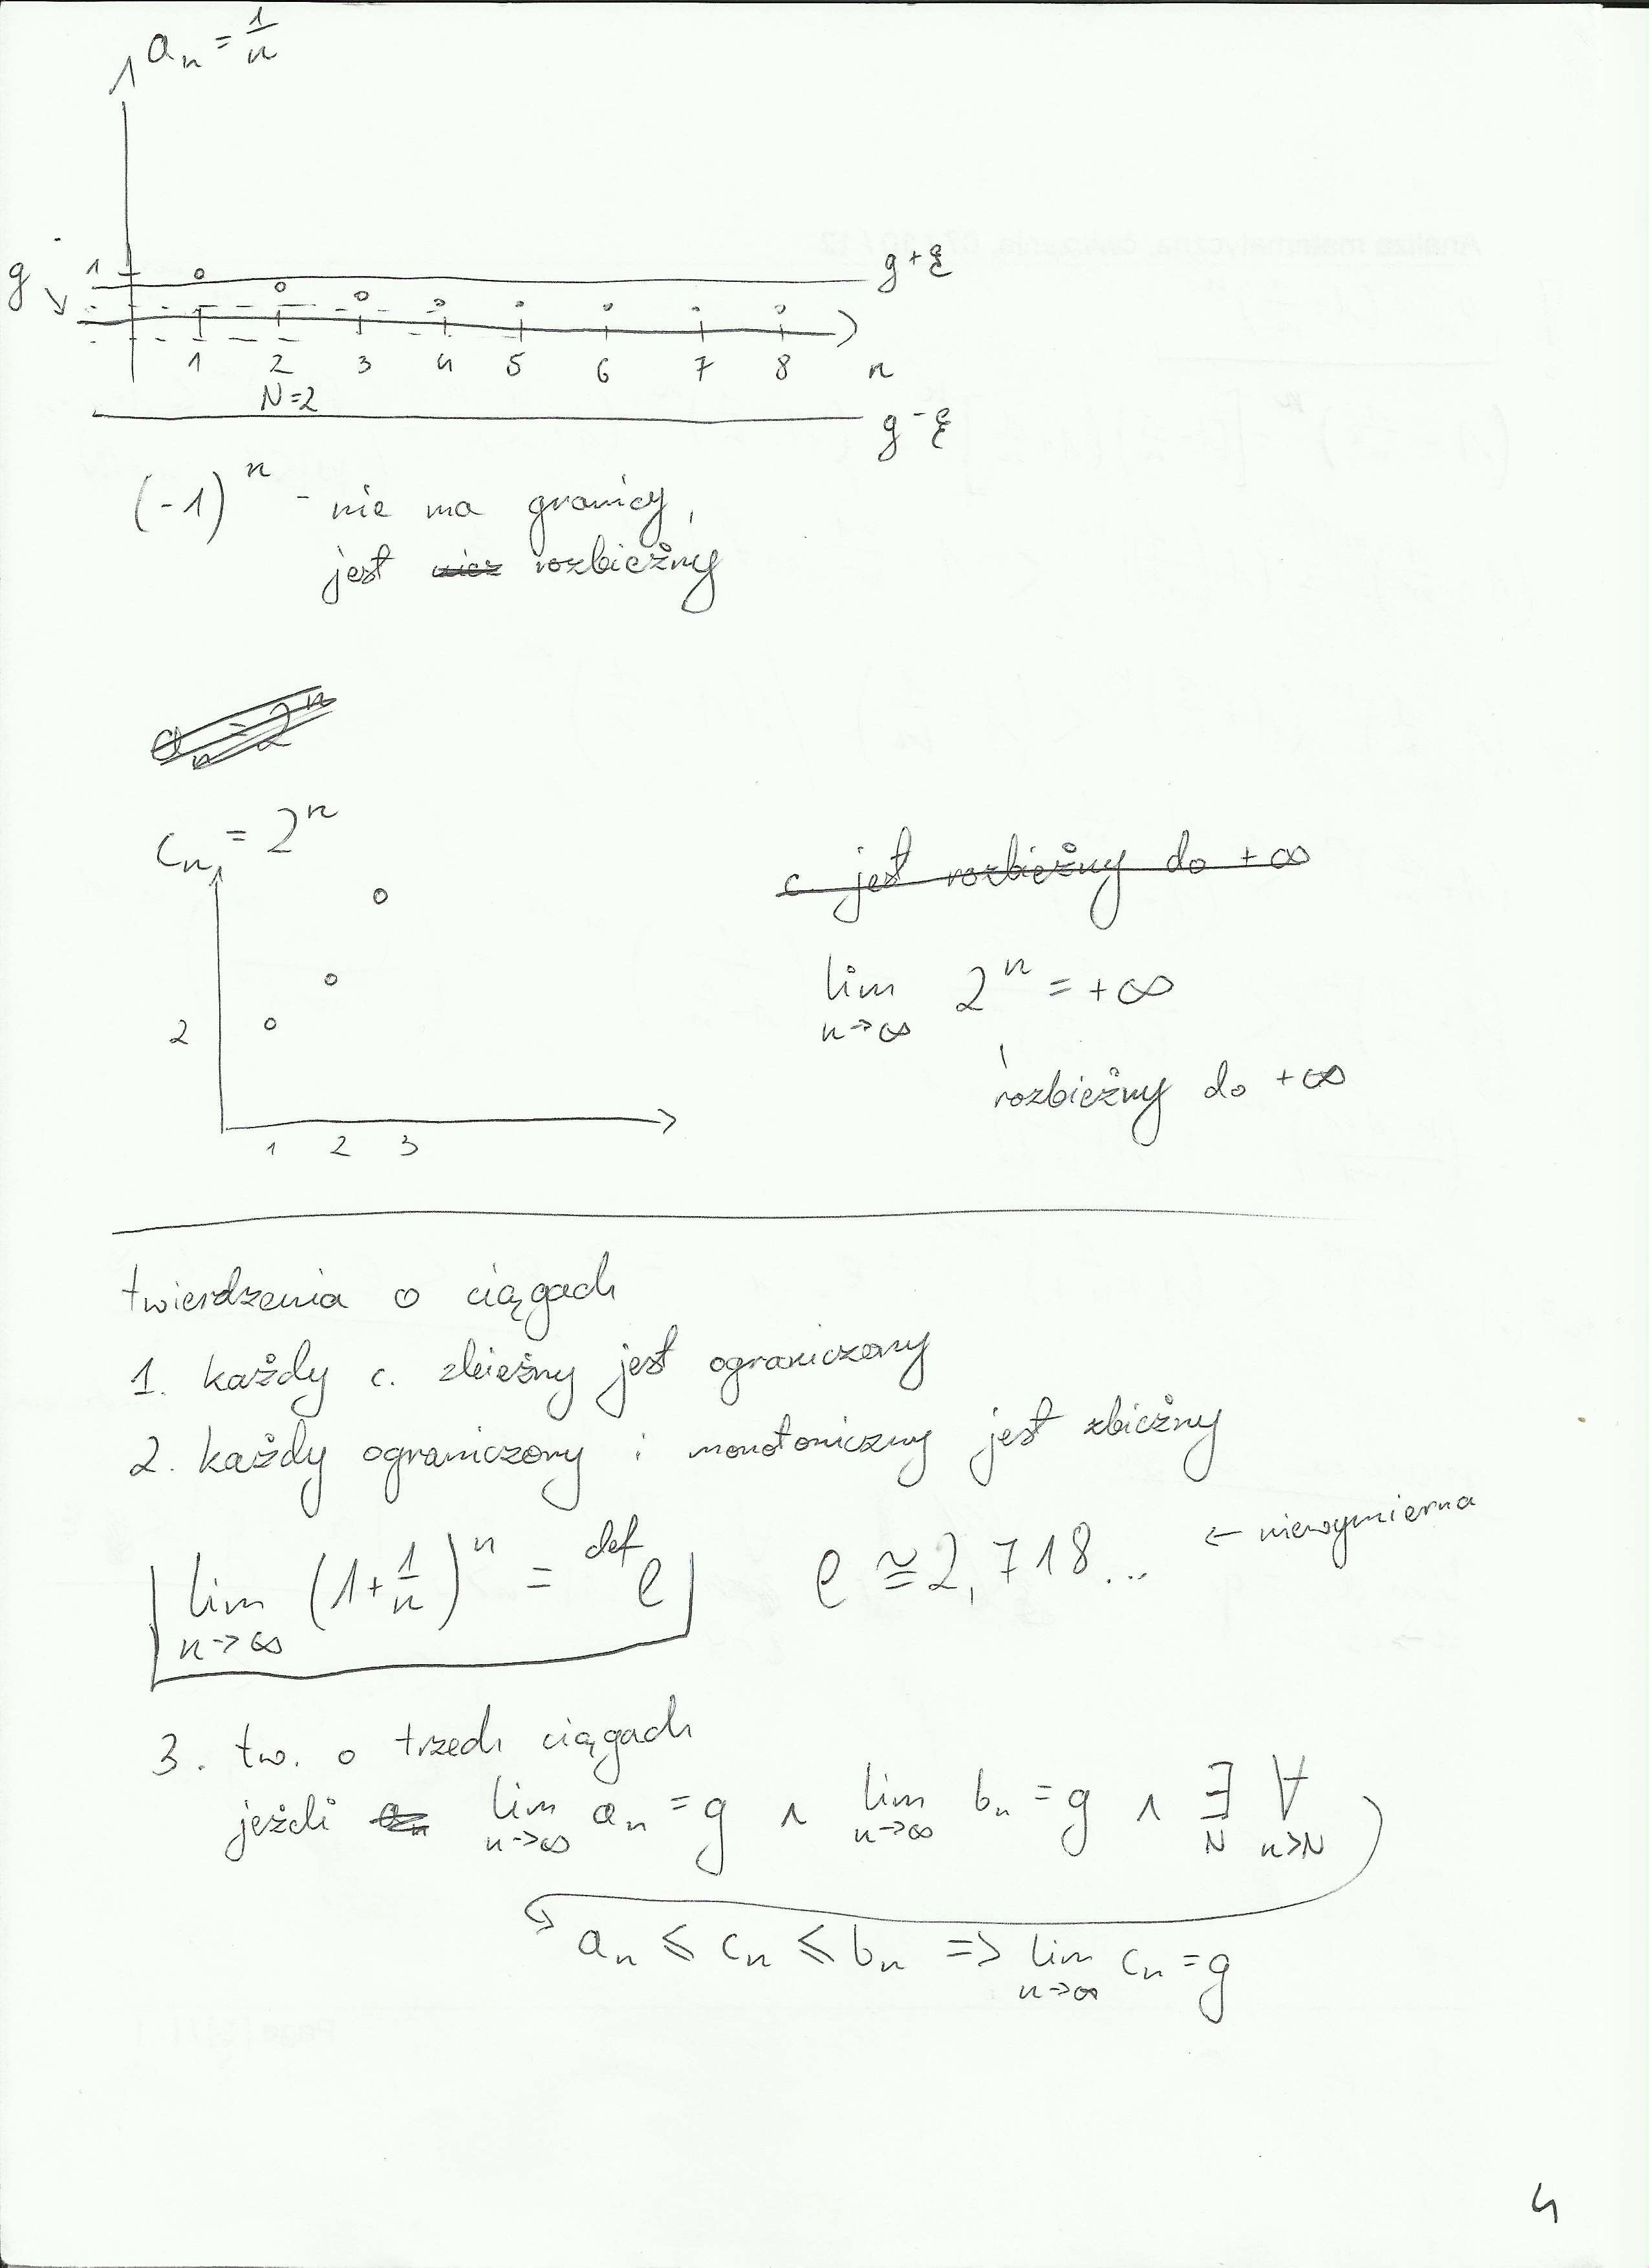 aₙ = 1/n
g 1 g+ε
1 2 3 4 5 6 7 8 n
N=2
g-ε
(-1)ⁿ - nie ma granicy,
jest rozbieżny
aₙ = 2ⁿ
cₙ = 2ⁿ
c. jest rozbieżny do +∞
lim n→∞ 2ⁿ = +∞
rozbieżny do +∞
2
1 2 3
twierdzenia o ciągach
1. każdy c. zbieżny jest ograniczony
2. każdy ograniczony i monotoniczny jest zbieżny
lim n→∞ (1+1/n)ⁿ =def e e ≅ 2,718... ← niewymierna
3. tw. o trzech ciągach
jeżeli aₙ lim n→∞ aₙ = g ∧ lim n→∞ bₙ = g ∧ ∃ N ∀ n>N
aₙ ≤ cₙ ≤ bₙ => lim n→∞ cₙ = g
4